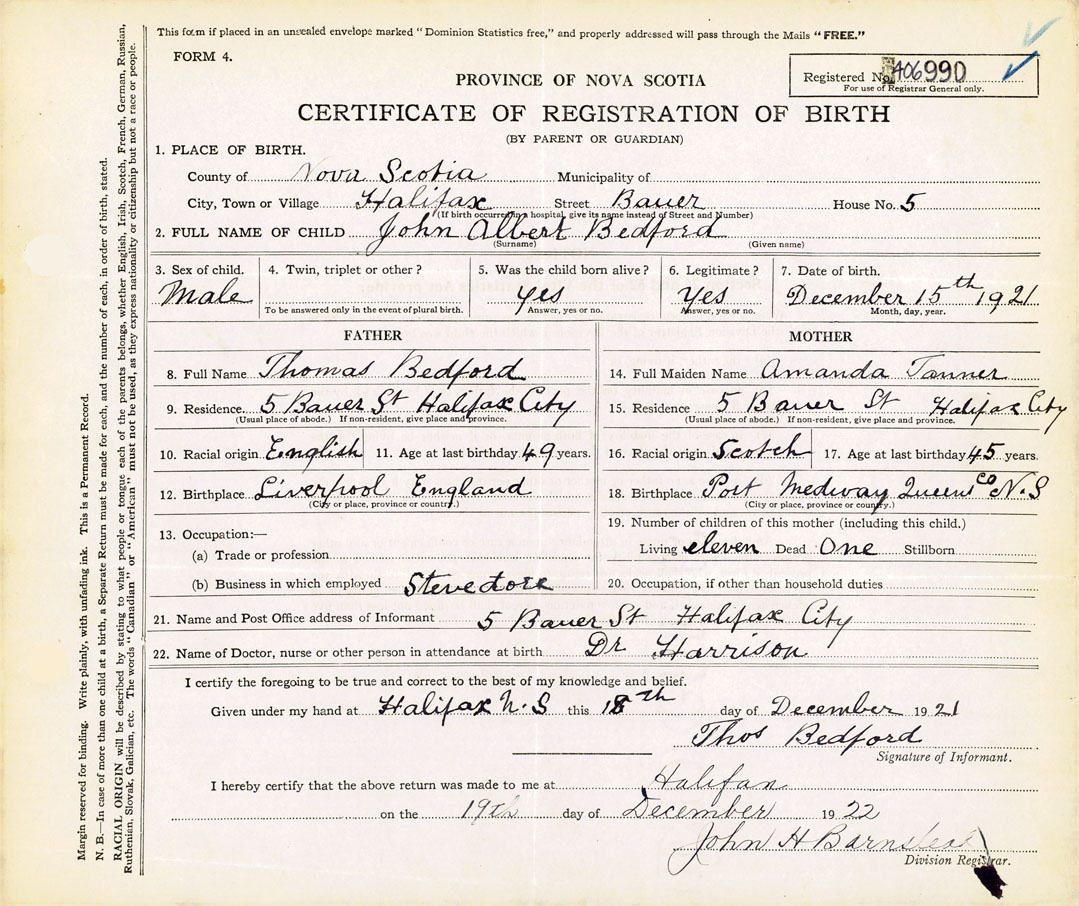 This form if placed in an unsealed envelope marked "Dominion Statistics free," and properly addressed will pass through the Mails "FREE."
FORM 4.
Registered No. 406990
For use of Registrar General only.
PROVINCE OF NOVA SCOTIA
CERTIFICATE OF REGISTRATION OF BIRTH
(BY PARENT OR GUARDIAN)
1. PLACE OF BIRTH.
County of Nova Scotia Municipality of
City, Town or Village Halifax Street Bauer House No. 5
(If birth occurred in a hospital, give its name instead of Street and Number)
2. FULL NAME OF CHILD John Albert Bedford
(Surname) (Given name)
3. Sex of child. 4. Twin, triplet or other? 5. Was the child born alive? 6. Legitimate? 7. Date of birth.
Male yes Yes December 15th 1921
To be answered only in the event of plural birth. Answer, yes or no. Answer, yes or no. Month, day, year.
FATHER
8. Full Name Thomas Bedford
9. Residence. 5 Bauer St Halifax City
(Usual place of abode.) If non-resident, give place and province.
10. Racial origin English 11. Age at last birthday 49 years.
12. Birthplace Liverpool England
(City or place, province or country.)
13. Occupation:—
(a) Trade or profession
(b) Business in which employed Stevedore
MOTHER
14. Full Maiden Name Amanda Tanner
15. Residence 5 Bauer St Halifax City
(Usual place of abode.) If non-resident, give place and province.
16. Racial origin Scotch 17. Age at last birthday 45 years.
18. Birthplace Port Medway Queens Co N.S
(City or place, province or country.)
19. Number of children of this mother (including this child.)
Living eleven Dead One Stillborn
20. Occupation, if other than household duties
21. Name and Post Office address of Informant 5 Bauer St Halifax City
22. Name of Doctor, nurse or other person in attendance at birth Dr Harrison
I certify the foregoing to be true and correct to the best of my knowledge and belief.
Given under my hand at Halifax N.S this 18th day of December 1921
Thos Bedford
Signature of Informant.
I hereby certify that the above return was made to me at Halifax
on the 19th day of December 1922
John H Barnstead
Division Registrar.
Margin reserved for binding. Write plainly, with unfading ink. This is a Permanent Record.
N. B.—In case of more than one child at a birth, a Separate Return must be made for each, and the number of each, in order of birth, stated.
RACIAL ORIGIN will be described by stating to what people or tongue each of the parents belongs, whether English, Irish, Scotch, French, German, Russian,
Ruthenian, Slovak, Galician, etc. The words "Canadian" or "American" must not be used, as they express nationality or citizenship but not a race or people.